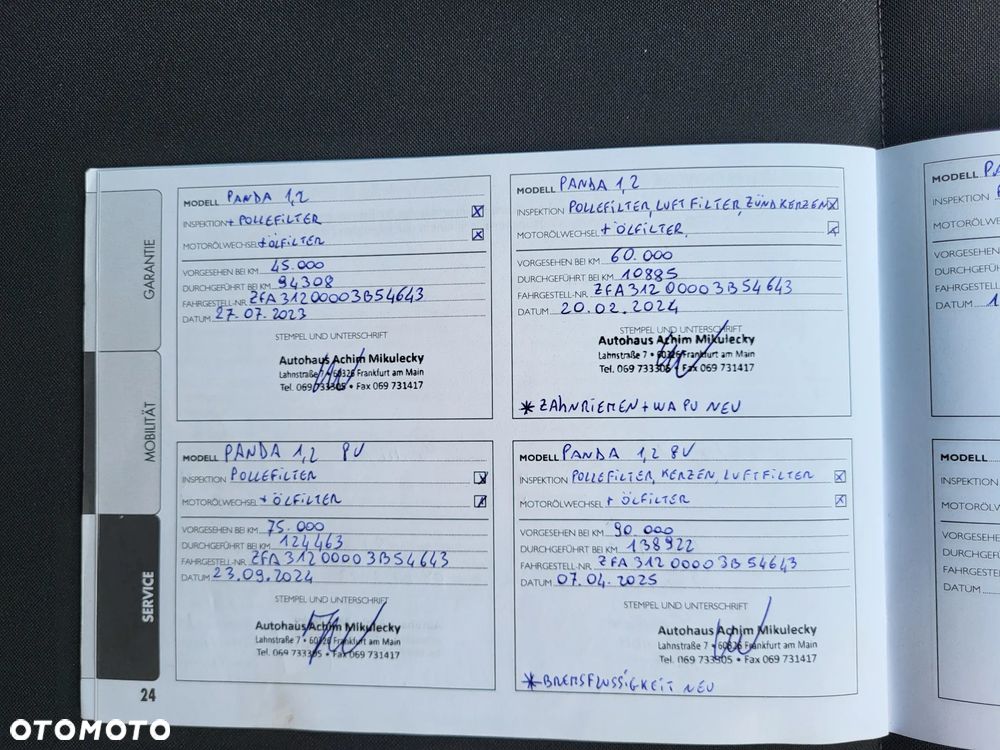 GARANTIE
MOBILITÄT
SERVICE
24
MODELL PANDA 1,2
INSPEKTION + POLLEFILTER
MOTORÖLWECHSEL + ÖLFILTER
VORGESEHEN BEI KM 45.000
DURCHGEFÜHRT BEI KM 94308
FAHRGESTELL-NR. ZFA31200003B54643
DATUM 27.07.2023
STEMPEL UND UNTERSCHRIFT
Autohaus Achim Mikulecky
Lahnstraße 7 • 60326 Frankfurt am Main
Tel. 069 733305 • Fax 069 731417
MODELL PANDA 1,2
INSPEKTION POLLEFILTER, LUFTFILTER, ZÜNDKERZEN
MOTORÖLWECHSEL + ÖLFILTER,
VORGESEHEN BEI KM 60.000
DURCHGEFÜHRT BEI KM 10885
FAHRGESTELL-NR. ZFA31200003B54643
DATUM 20.02.2024
STEMPEL UND UNTERSCHRIFT
Autohaus Achim Mikulecky
Lahnstraße 7 • 60326 Frankfurt am Main
Tel. 069 733305 • Fax 069 731417
* ZAHNRIEMEN + WAPU NEU
MODELL PANDA 1,2 8V
INSPEKTION POLLEFILTER
MOTORÖLWECHSEL + ÖLFILTER
VORGESEHEN BEI KM 75.000
DURCHGEFÜHRT BEI KM 124463
FAHRGESTELL-NR. ZFA31200003B54643
DATUM 23.09.2024
STEMPEL UND UNTERSCHRIFT
Autohaus Achim Mikulecky
Lahnstraße 7 • 60326 Frankfurt am Main
Tel. 069 733305 • Fax 069 731417
MODELL PANDA 1,2 8V
INSPEKTION POLLEFILTER, KERZEN, LUFTFILTER
MOTORÖLWECHSEL + ÖLFILTER
VORGESEHEN BEI KM 90.000
DURCHGEFÜHRT BEI KM 138922
FAHRGESTELL-NR. ZFA31200003B54643
DATUM 07.04.2025
STEMPEL UND UNTERSCHRIFT
Autohaus Achim Mikulecky
Lahnstraße 7 • 60326 Frankfurt am Main
Tel. 069 733305 • Fax 069 731417
* BREMSFLUSSIGKEIT NEU
MODELL PA
INSPEKTION
MOTORÖLWE
VORGESEHEN
DURCHGEFÜ
FAHRGESTEL
DATUM 1
MODELL
INSPEKTION
MOTORÖLW
VORGESEHEN
DURCHGEF
FAHRGESTEL
DATUM
OTOMOTO